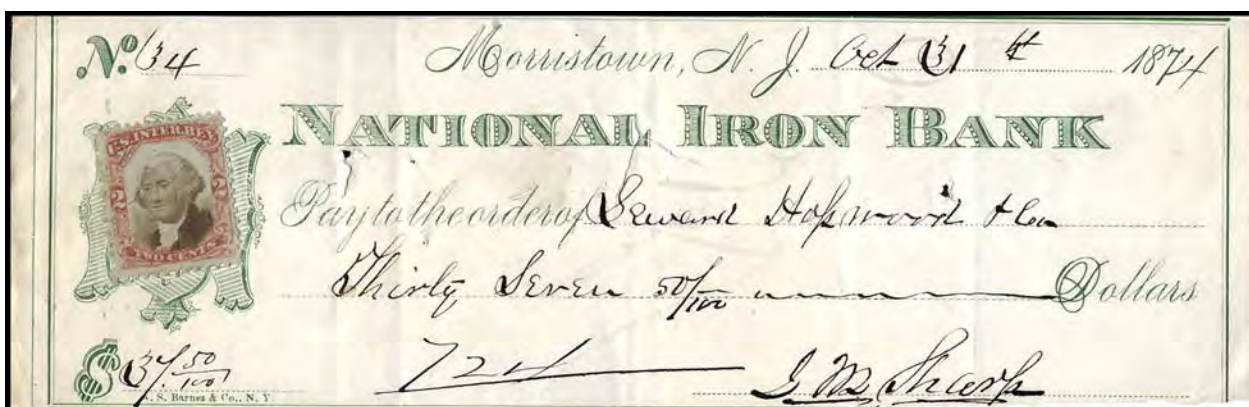 No. 34 Morristown, N. J. Oct 31 st 1874
U.S. INTER. REV.
2 2
TWO CENTS
NATIONAL IRON BANK
Pay to the order of Seward Hopwood & Co
Thirty Seven 50/100 Dollars
$ 37. 50/100 724 Sharp
S. Barnes & Co., N. Y.